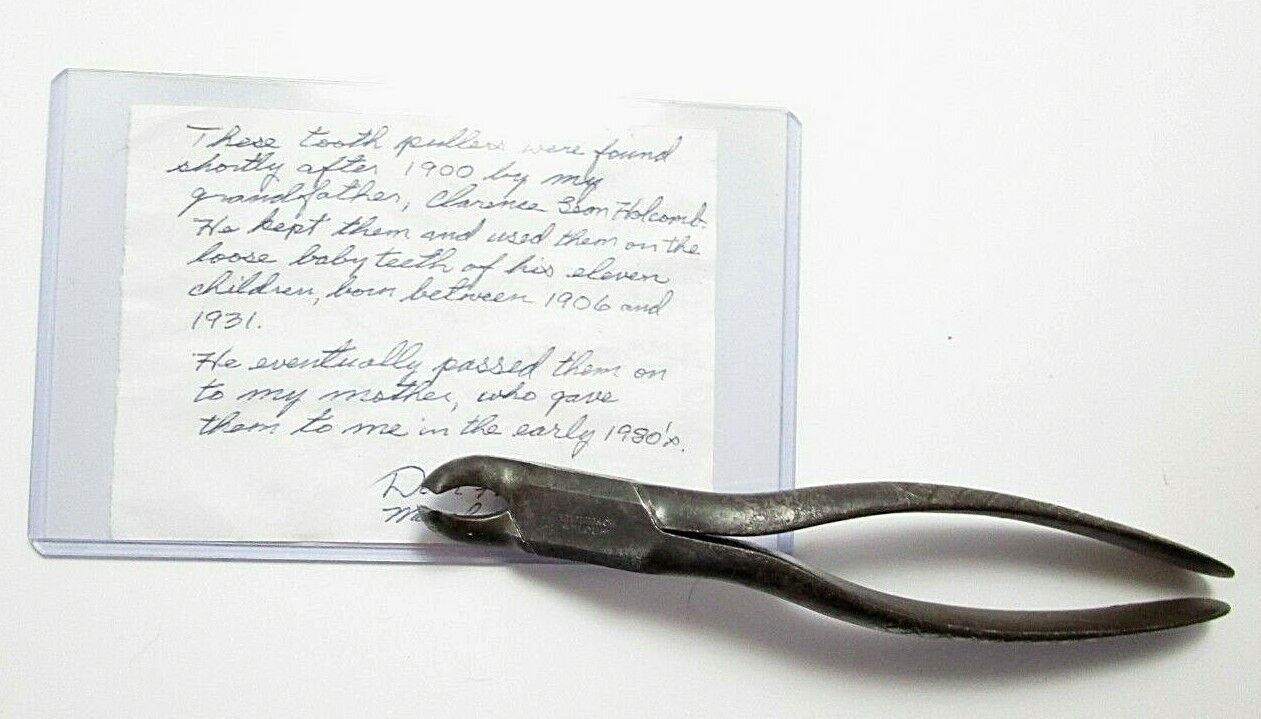 These tooth pullers were found
shortly after 1900 by my
grandfather, Clarence Holcomb.
He kept them and used them on the
loose baby teeth of his eleven
children, born between 1906 and
1931.
He eventually passed them on
to my mother, who gave
them to me in the early 1980's.